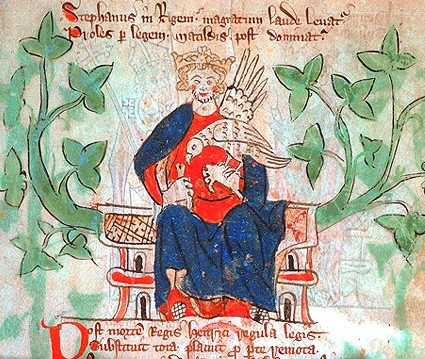 Stephanus in Regem magnatum laude levatr
Proles p legem matildis post dominatr
Post mortem Regis Henrici regula legis
Substituit placuit p pte